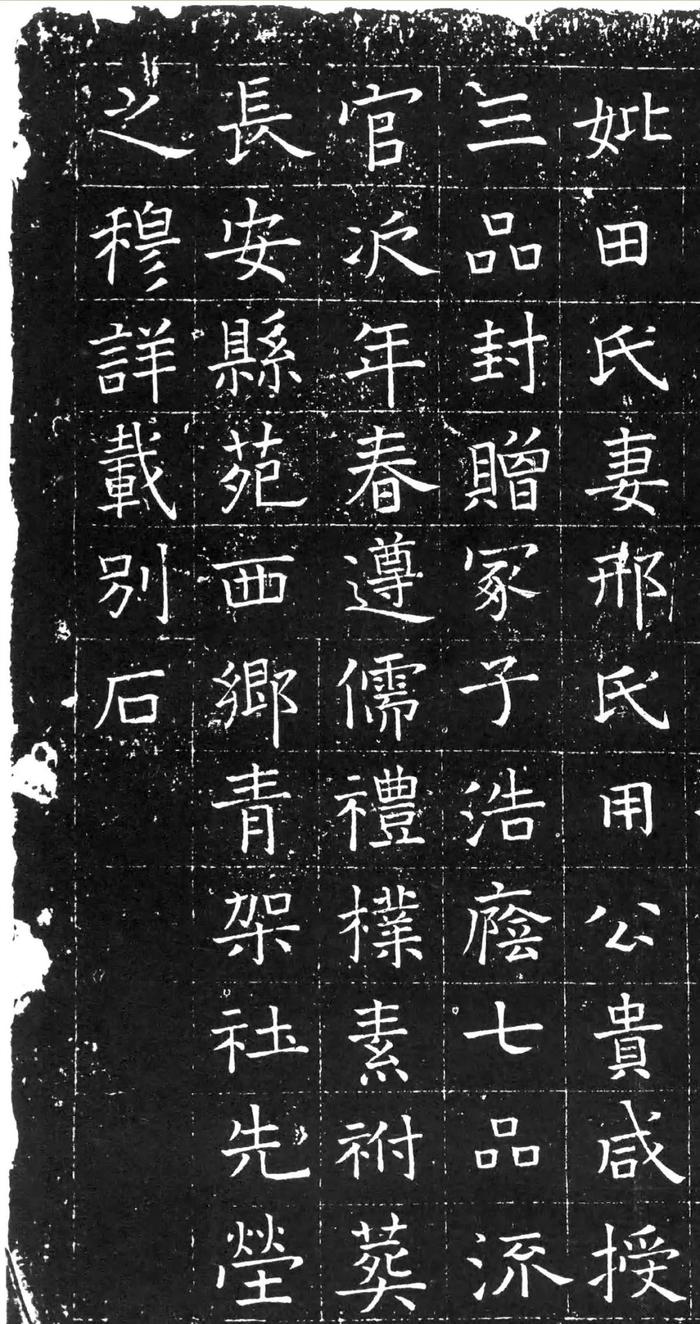 妣田氏妻邢氏用公貴咸授
三品封贈冢子浩廕七品流
官次年春遵儒禮樸素祔葬
長安縣苑西鄉青架社先塋
之穆詳載別石